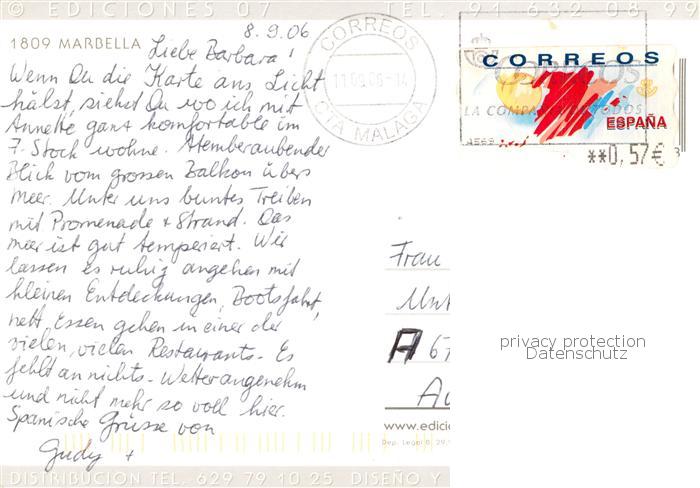 © EDICIONES 07 TEL. 91 632 08 99
8.9.06
1809 MARBELLA
Liebe Barbara!
Wenn Du die Karte ans Licht
hälst, siehst Du wo ich mit
Annette ganz komfortable im
7. Stock wohne. Atemberaubender
Blick vom grossen Balkon übers
Meer. Unter uns buntes Treiben
mit Promenade + Strand. Das
Meer ist gut temperiert. Wir
lassen es ruhig angehen mit
kleinen Entdeckungen, Bootsfahrt,
nett Essen gehen in einer der
vielen, vielen Restaurants. Es
fehlt an nichts. Wetter angenehm
und nicht mehr so voll hier.
Spanische Grüsse von
Gudy +
CORREOS
MALAGA
CORREOS
CORREOS
LA COMPA
ESPAÑA
**0,57€
Frau
Unt
A 67
Au
www.edicio
Dep. Legal B. 29.
privacy protection
Datenschutz
DISTRIBUCION TEL. 629 79 10 25 DISEÑO Y